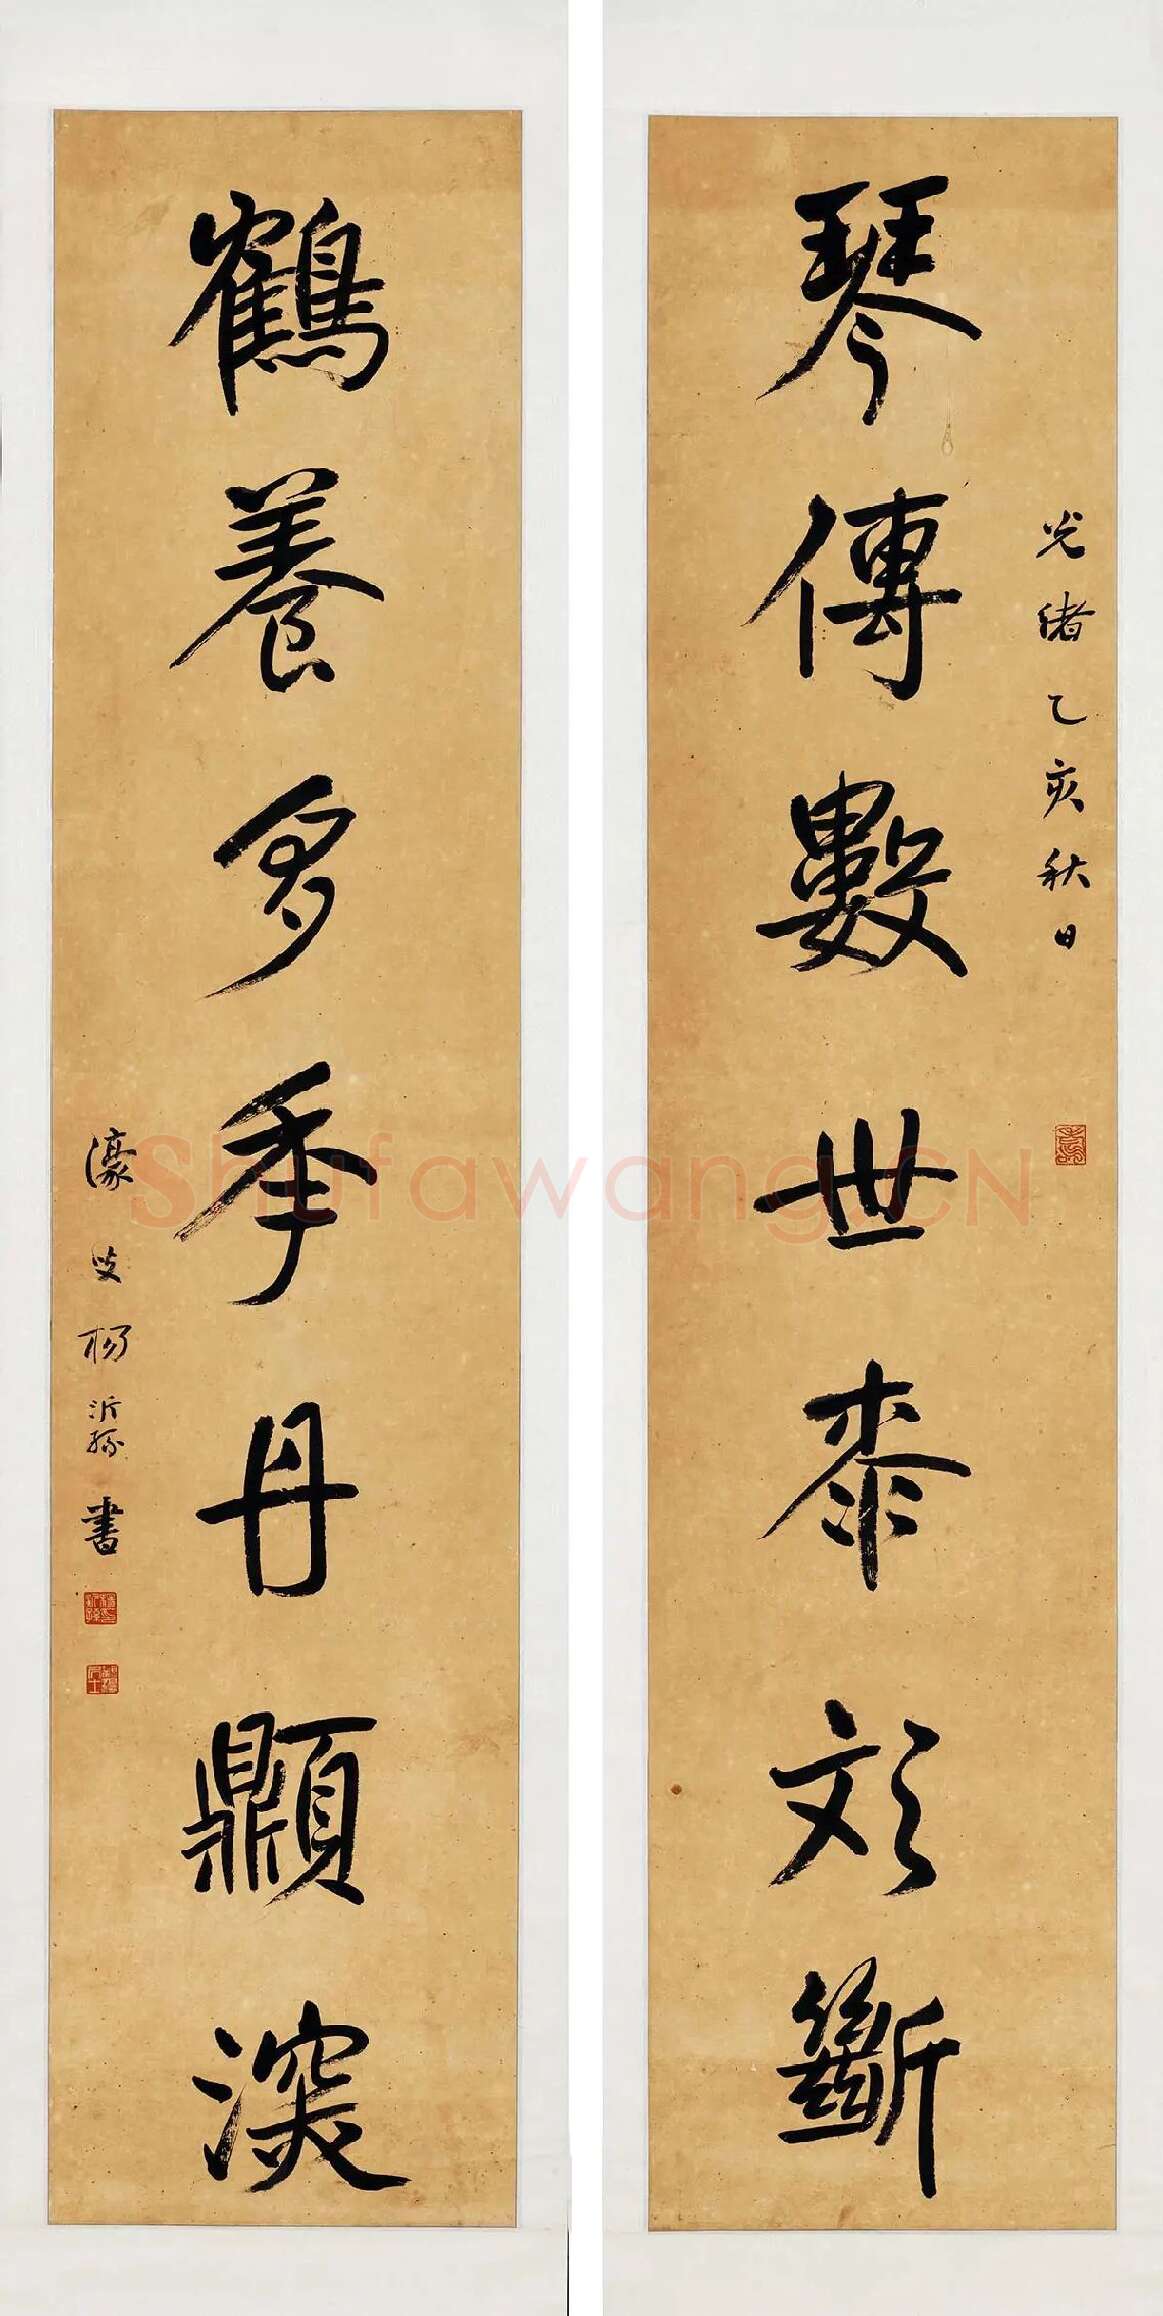 光緒乙亥秋日
琴傳數世桼彣斷
鶴養多秊丹𩕢深
濠叟楊沂孫書
Shufawang.CN